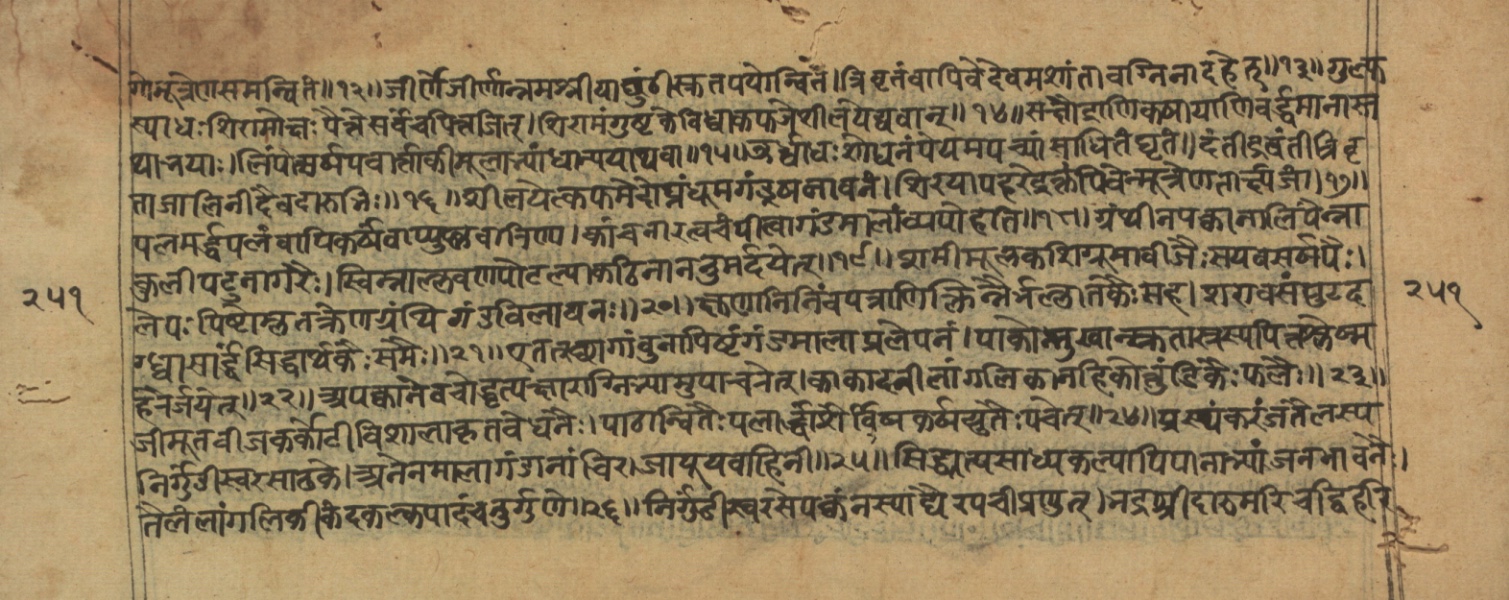 गोमूत्रेणसमन्वितं॥१२॥जीर्णेजीर्णान्नमश्नीयाछुंठीस्कतपयोन्वितं।त्रिवृतंवापिवेदेवमशांतावग्निनादहेत्॥१३॥गुल्फ
स्याधःशिरामोक्षःपैत्तेसर्वंचपित्तजित्।शिरामंगुष्टकेविध्वाकफजेशीलयेद्यवान्॥१४॥सक्षौद्राणिकषायाणिवर्द्धमानास्त
थाभयाः।लिंपेत्सर्षपवार्त्ताकीमूलाभ्यांधान्ययाथवा॥१५॥ऊर्ध्वाधःशोधनंपेयमपच्यांसाधितंघृतं॥दंतीद्रवंतीत्रिवृ
ताजालिनीदेवदारुभिः॥१६॥शीलयेत्कफमेदोघ्नंधूमगंडूषनावनं।शिरयापहरेद्रक्तंपिबेन्मूत्रेणतार्क्ष्यजं।१७॥
पलमर्द्धपलंवापिकर्षंवाप्युष्णवारिणा।कांचनारत्वचंपीत्वागंडमालांव्यपोहति॥१८॥ग्रंथीनपक्वानालिंपेन्ना
कुलीपटुनागरैः।स्विन्नाल्लवणपोटल्याकठिनाननुमर्दयेत्॥१९॥शमीमूलकशिग्रूमाबीजैःसयवसर्षपैः।
लेपःपिष्टाम्लतक्रेणग्रंथिगंडविलायनः॥२०॥क्षुण्णानिनिंबपत्राणिक्लिन्नैर्भल्लातकैःसह।शरावसंपुटेद
ग्ध्वासार्द्धंसिद्धार्थकैःसमैः॥२१॥एतत्छागांबुनापिष्टंगंडमालाप्रलेपनं।पाकोन्मुखान्स्रुतास्रस्यपित्तश्लेष्म
हरैर्जयेत्॥२२॥अपक्वानेवचोद्धृत्यक्षाराग्निभ्यामुपाचरेत्।काकादनीलांगलिकानहिकोत्तुंडिकैःफलैः॥२३॥
जीमूतबीजकर्कोटीविशालाकृतवेधनैः।पाठान्वितैःपलार्द्धांशैर्विषकर्षयुतैःपचेत्॥२४॥प्रस्थंकरंजतैलस्य
निर्गुंडीस्वरसाढके।अनेनमालागंडानांचिरजापूयवाहिनी॥२५॥सिद्ध्यत्यसाध्यकल्पापिपानाभ्यांजनभावनैः।
तैलंलांगलिकीकंदकल्कपादंचतुर्गुणे॥२६॥निर्गुंडीस्वरसेपक्वंनस्याद्यैरपचीप्रणुत्।भद्रश्रीदारुमरिचद्विहरि
२५१
२५१